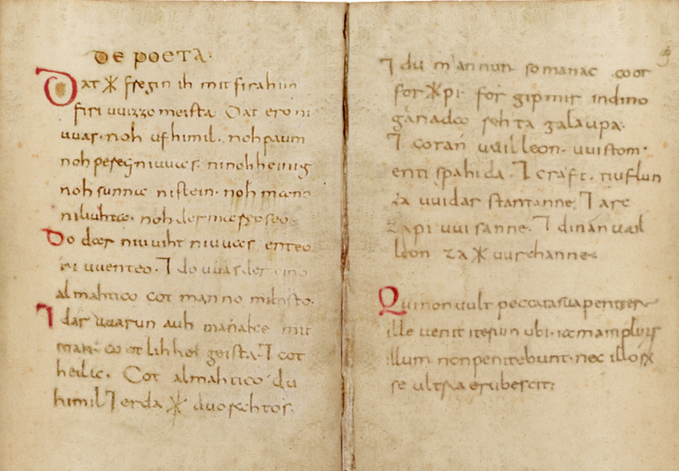 De poeta.
Dat ᛡ fregin ih mit firahim
firi uuizzo meista. Dat ero ni
uuas. noh ufhimil. noh paum
noh pereg ni uuas. ninohheinig
noh sunna ni stein. noh mano
ni liuhta. noh der mareo seo.
Do dar niuuiht ni uuas enteo
ni uuenteo. ⁊ do uuas der eino
almahtico cot manno miltisto.
⁊ dar uuarun auh manake mit
man. coot lihhe geista. ⁊ cot
heilac. Cot almahtico du
himil ⁊ erda ᛡ uuorahtos.
⁊ du mannun so manac coot
for ᛡ pi. for gipmir indino
ganada rehta galaupa.
⁊ cotan uuilleon. uuistom.
enti spahida. ⁊ craft. tiuflun
za uuidar stantanne. ⁊ arc
za pi uuisanne. ⁊ dinan uuil
leon za ᛡ uurchanne.
Qui non uult peccata sua penitere
ille uenit iterum ubi iam amplius
illum non penitebunt. nec illorum
se ultra erubescit.